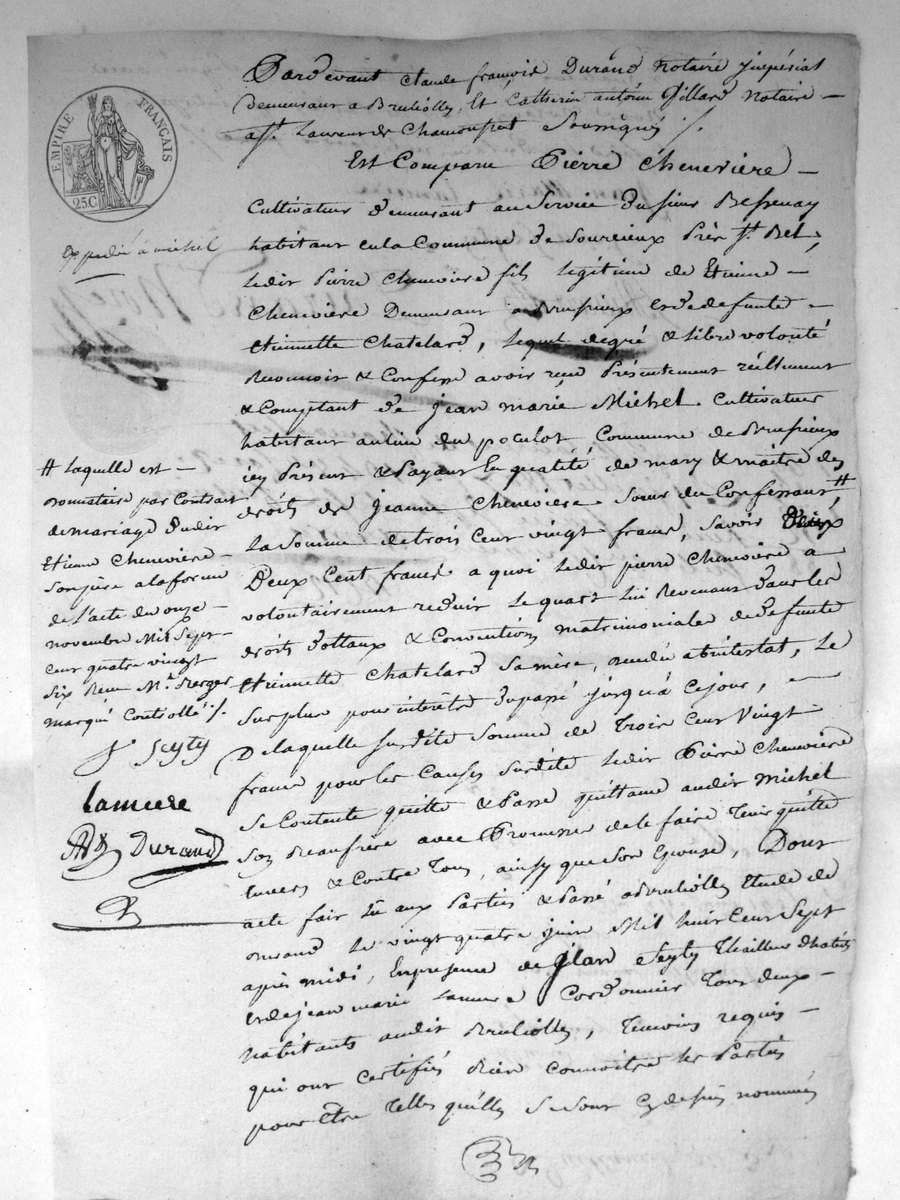 EMPIRE FRANÇAIS
25C
Expedié à michel
Pardevant claude françois Durand Notaire jmpérial
demeurant a Brulliolles, Et Catherin antoine Gillard Notaire
a St. Laurent de Chamousset Soussignés
Est Comparu Pierre Chenevière
Cultivateur demeurant au Service du sieur Bessenay
habitant en la Commune de Sourcieux Près St. Bel,
ledit Pierre Chenevière fils légitime de Etienne
Chenevière Demeurant a Brussieux et de defunte
Etiennette Chatelard, lequel de gré & libre volonté
Reconnoit & Confesse avoir reçu Présentement réellement
& Comptant de jean marie Michel Cultivateur
habitant au lieu du poculot Commune de Brussieux
icy Présent & Payant En qualité de mary & maitre des
droits de jeanne Chenevière Soeur du Confessant #
La Somme de trois Cent vingt francs, Savoir
Deux Cent francs a quoi ledit pierre Chenevière a
volontairement reduit le quart lui Revenant dans les
droits dottaux & Conventions matrimoniales de defunte
Etiennette Chatelard Sa mère, morte abintestat, Le
Surplus pour intérêts du passé jusqu'à ce jour,
De laquelle Susdite Somme de Trois Cent Vingt
francs pour les Causes Susdite ledit Pierre Chenevière
Se Contente quitte & Passe quittance audit Michel
Son Beaufrère avec Promesse de le faire Tenir quitte
Envers & Contre Tous, ainsy que Son Epouse, Dont
acte fait lû aux Parties & Passé a Brulliolles Etude de
Durand le vingt quatre juin Mil huit Cent Sept
après midi, En presence de jean Seyty Thailleur d'habits
et de jean marie Lamure Cordonnier Tous deux
habitants audit Brulliolles, Temoins requis
qui ont certifiés Bien Connoitre les Parties
pour être Telles qu'elles Se Sont Cy dessus nommées
# laquelle est
donnataire par Contrat
de mariage dudit
Etienne Chenevière
Son père a la forme
de l'acte du onze
novembre Mil Sept
Cent quatre vingt
Six Reçu Me.
marqué Controllé
Seyty
Lamure
Durand